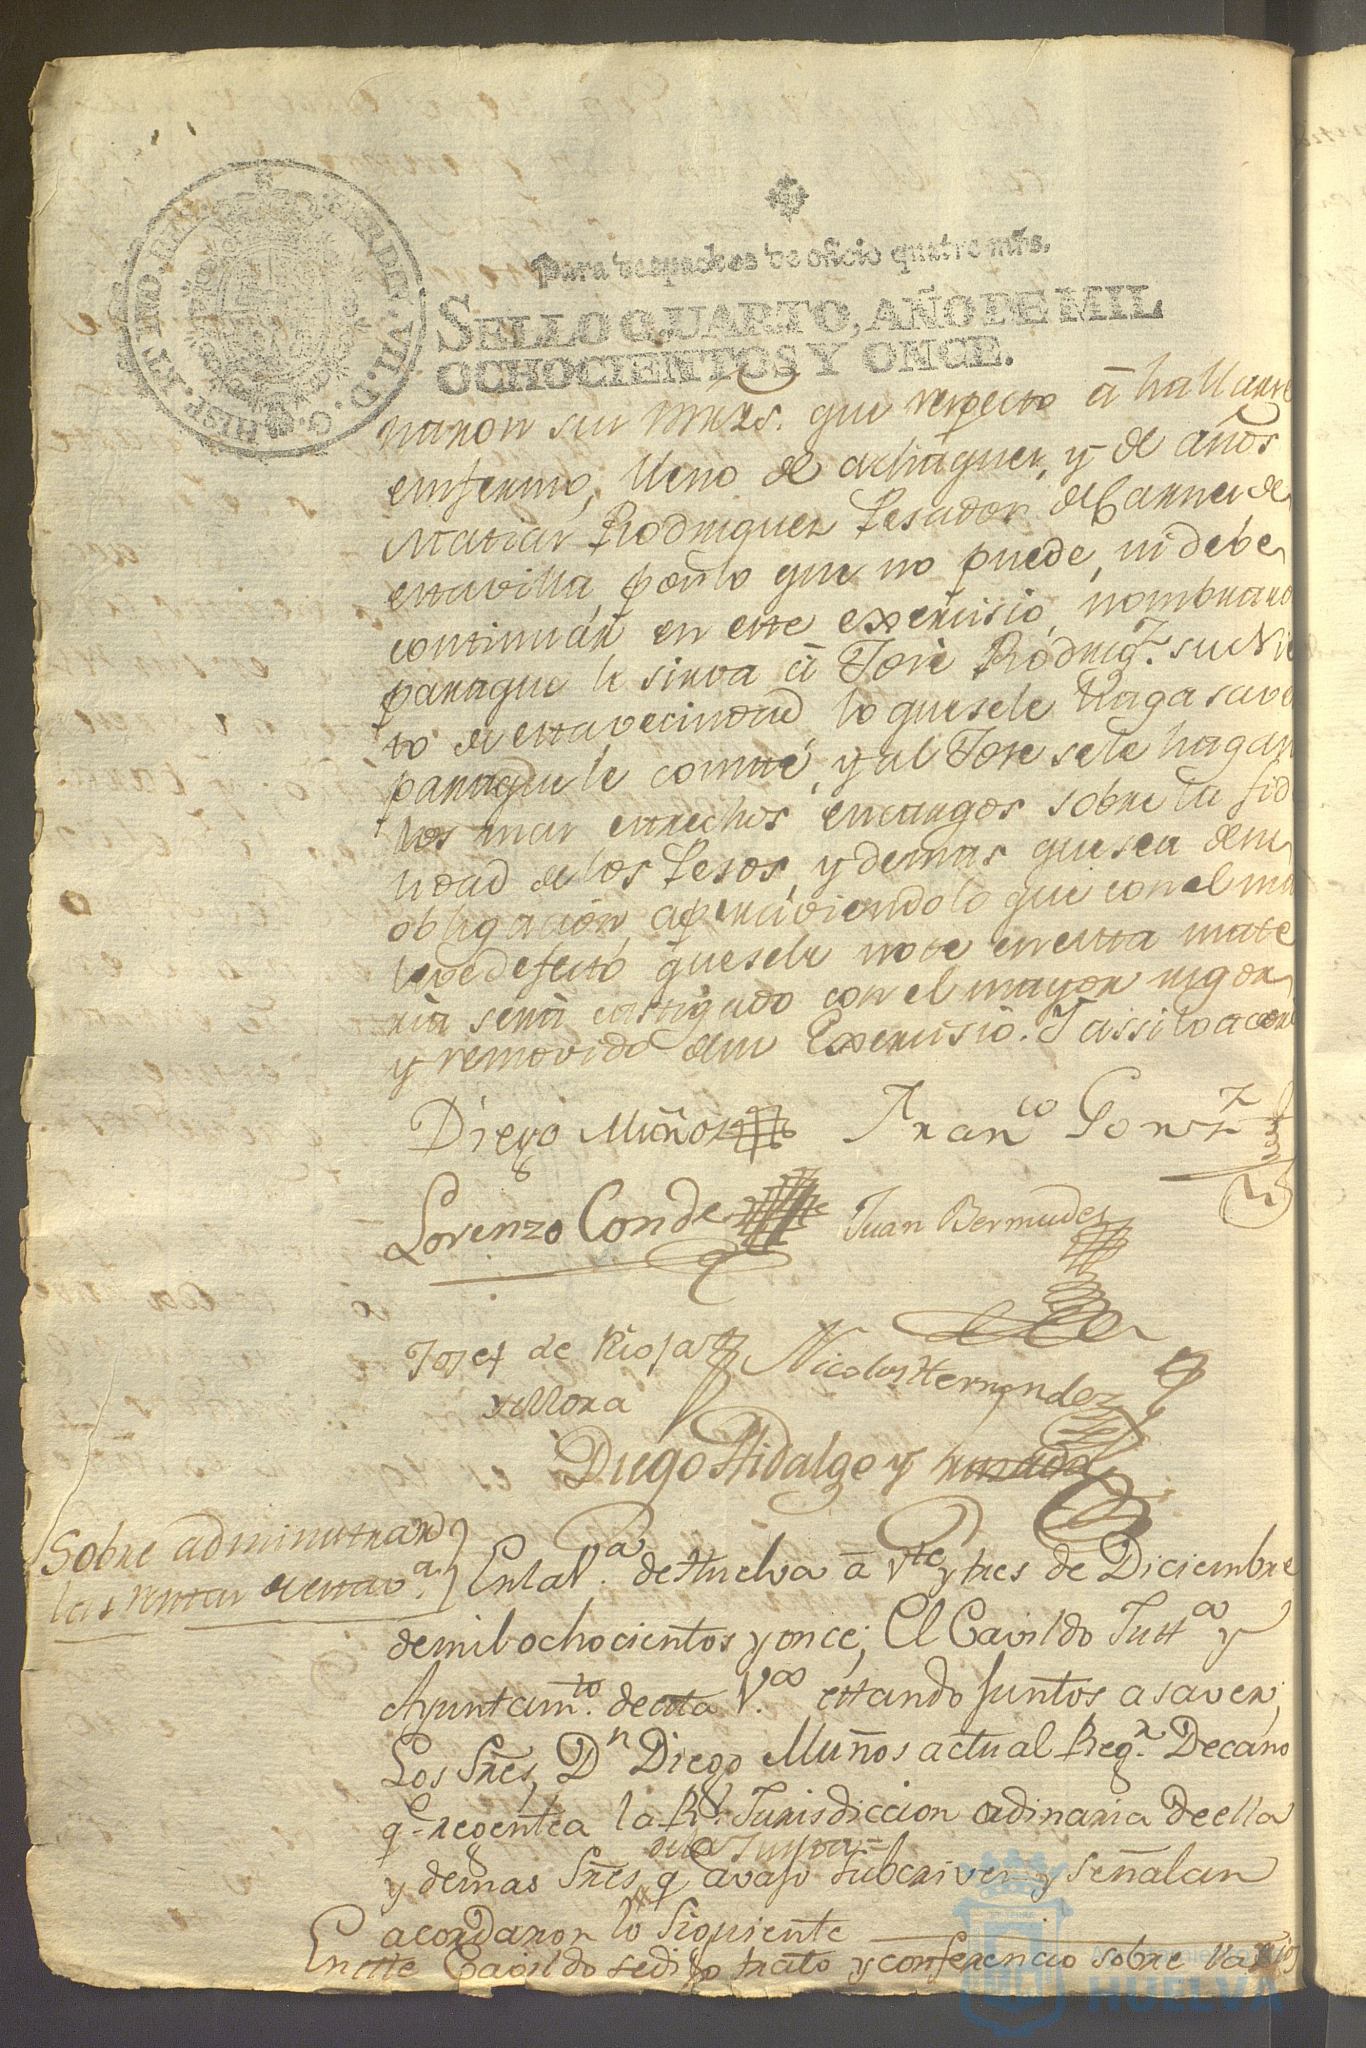 Para despachos de oficio quatro mrs.
SELLO QUARTO, AÑO DE MIL
OCHOCIENTOS Y ONCE.
HISP. ET IND. REX
naron sus mrzs. que respecto â hallarse
emfermo, lleno de achaques, y de años
Matias Rodriguez Pesador de Carnes de
esta villa, por lo que no puede, ni debe
continuar en este exercisio, nombraro
paraque le sirva â Jose Rodrig.z su Nie
to de esta vecindad, lo que se le haga save
paraque le conste, y al Jose se le hagan
los mas estrechos encargos sobre la fid
lidad de los Pesos, y demas que sea de su
obligacion, aperciviendolo que con el mas
leve defecto que se le note en esta mate
ria será castigado con el mayor rigor
y removido de su Exercisio. Y assi lo acor
Diego Muñoz Fran.co Gonz.z
Lorenzo Conde Juan Bermudez
Josef de Rioja Nicolas Hernandez
y Mora
Diego Hidalgo y
Sobre administrar
las rentas de esta v.a
En la V.a de Huelva â V.te y tres de Diciembre
de mil ochocientos y once; El Cavildo Just.a y
Ayuntam.to de esta V.a estando Juntos a saver;
Los Sres. D.n Diego Muños actual Reg.r Decano
q.e regentea la R.l Jurisdiccion ordinaria de ella
y demas Sres q.e avajo subcriven y señalan
acordaron lo siguiente
En este Cavildo se dijo trato y conferencio sobre varios
Ayuntamiento de
HUELVA